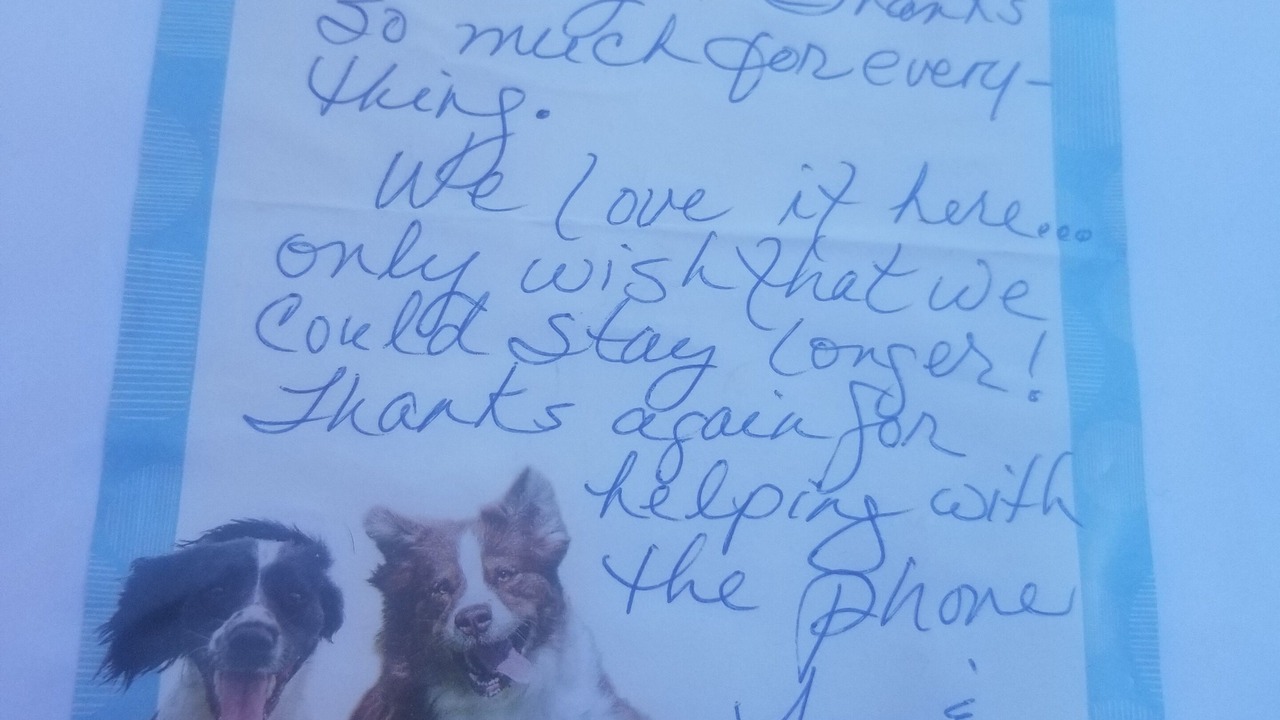 Thanks
So much for every-
thing.
We love it here...
only wish that we
Could stay longer!
Thanks again for
helping with
the phone